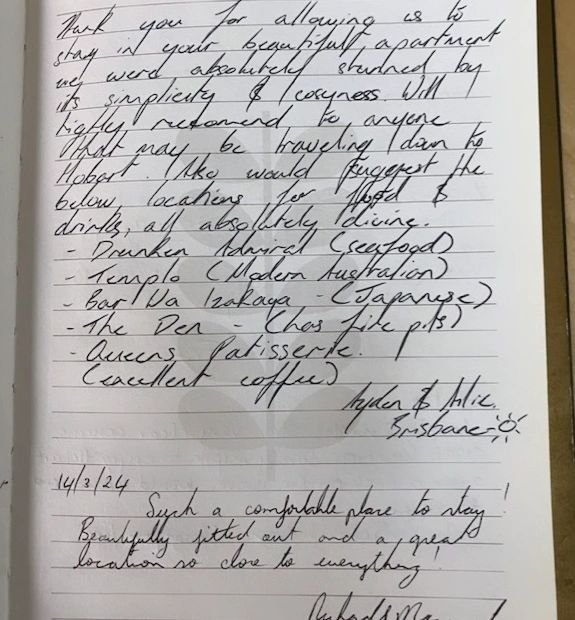 Thank you for allowing us to
stay in your beautiful apartment
we were absolutely stunned by
its simplicity & cosyness. Will
highly recomend to anyone
that may be traveling down to
Hobart. Also would suggest the
below locations for food &
drinks, all absolutely divine.
- Drunken Admiral (seafood)
- Templo (Modern Australian)
- Bar Wa Izakaya - (Japanese)
- The Den - (has fire pits)
- Queens Patisserie.
(excellent coffee)
&
Brisbane
14/3/24
Such a comfortable place to stay!
Beautifully fitted out and a great
location so close to everything!